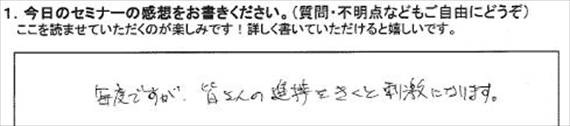 1. 今日のセミナーの感想をお書きください。（質問・不明点などもご自由にどうぞ）
ここを読ませていただくのが楽しみです！詳しく書いていただけると嬉しいです。
毎度ですが、皆さんの進捗をきくと刺激になります。